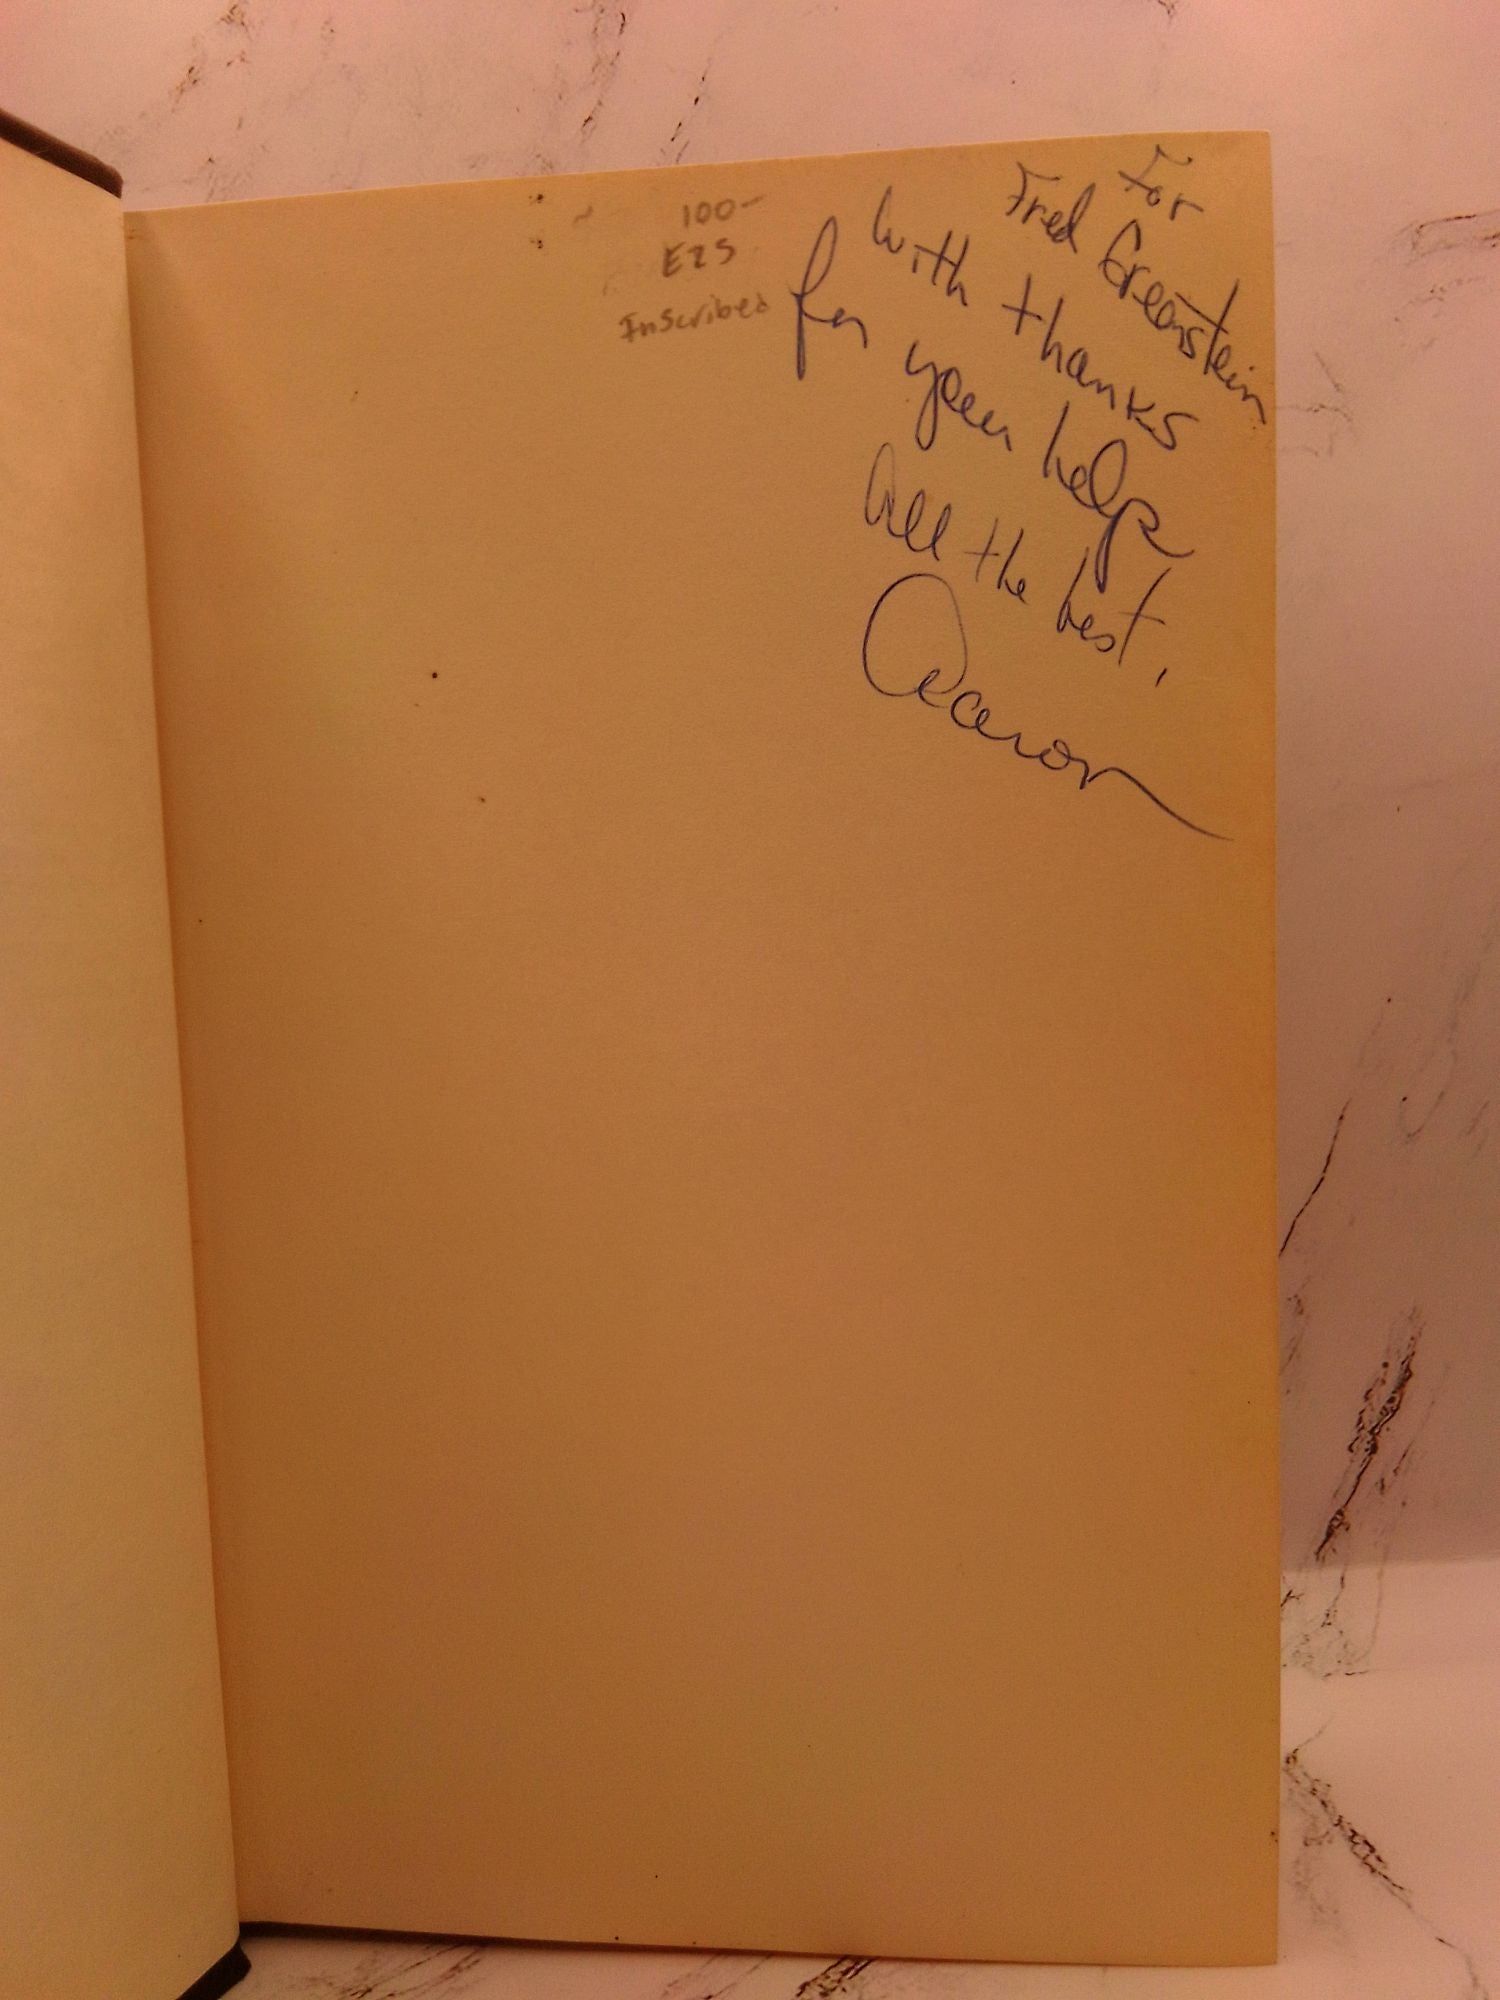 100-
E25
Inscribed
For
Fred Greenstein
with thanks
for your help
All the best,
Aaron